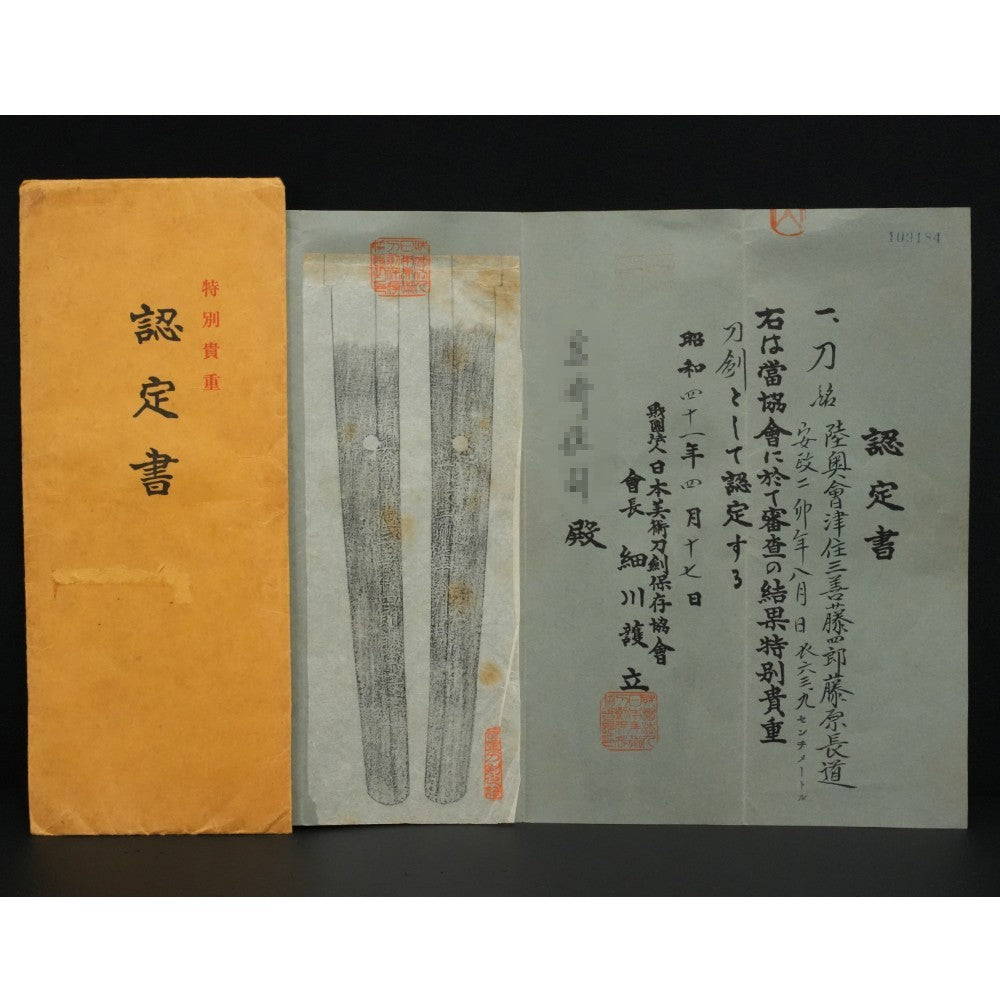 特別貴重
認定書
109184
認定書
一、刀 銘 陸奥會津住三善藤四郎藤原長道
安政二卯年八月日 長六三、九センチメートル
右は當協會に於て審査の結果特別貴重
刀剣として認定する
昭和四十一年四月十七日
財團法人日本美術刀剣保存協會
會長 細川護立
殿